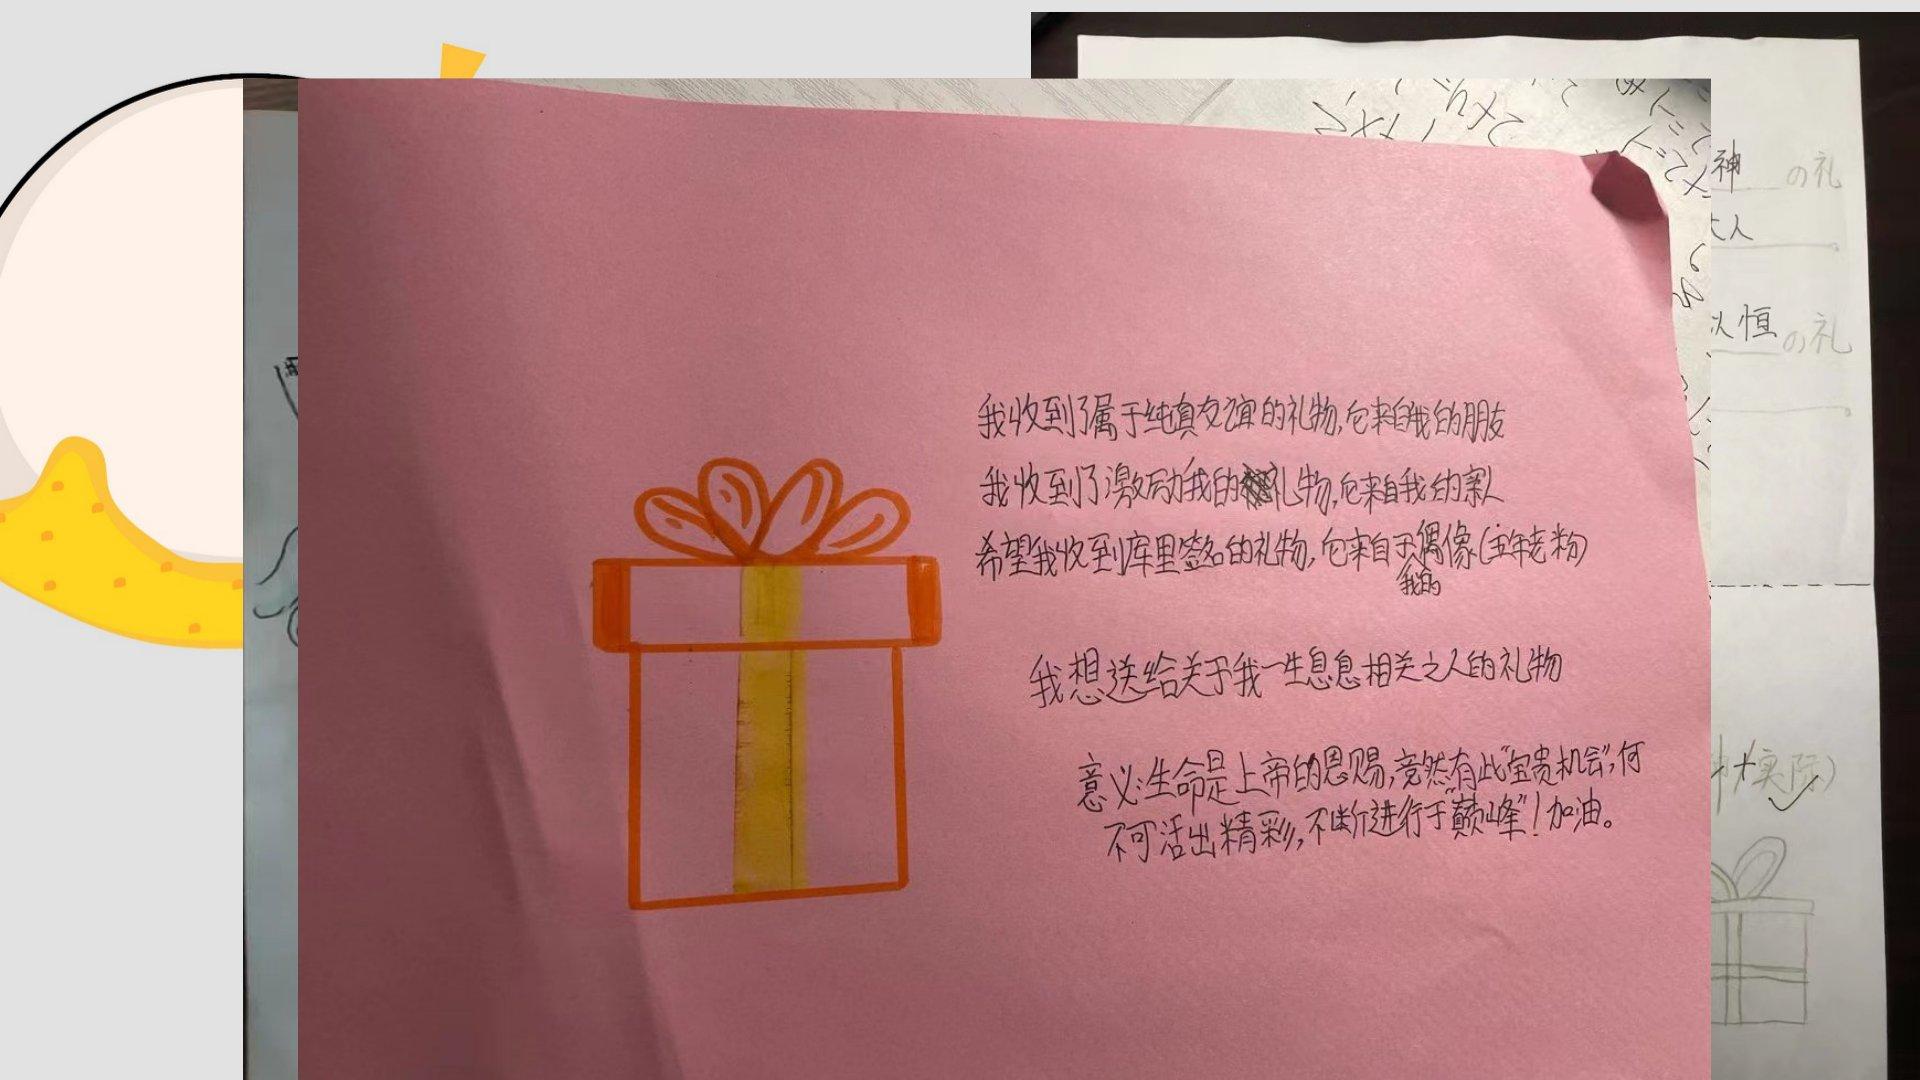 我收到了属于纯真友谊的礼物,它来自我的朋友
我收到了激励我的礼物,它来自我的家人
希望我收到库里签名的礼物,它来自于我的偶像(五年老粉)
我想送给关于我一生息息相关之人的礼物
意义:生命是上帝的恩赐,竟然有此"宝贵机会",何
不可活出精彩,不断进行于"巅峰"!加油。
神 の礼
大人
以恒の礼
实际)